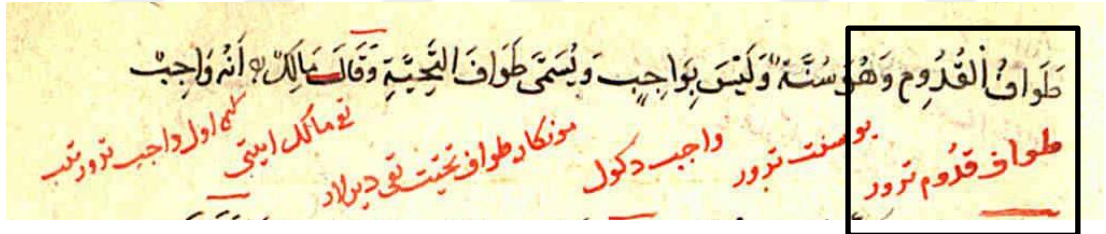 طَوَافُ الْقُدُومِ وَهُوَ سُنَّةٌ وَلَيْسَ بِوَاجِبٍ وَيُسَمَّى طَوَافَ التَّحِيَّةِ وَقَالَ مَالِكٌ اَنَّهُ وَاجِبٌ
طواف قدُوم ترور بو سنت ترور واجب دكول طواف تحيّت تقى ديرلار تقى مالك ايتتى اول واجب ترور تيب